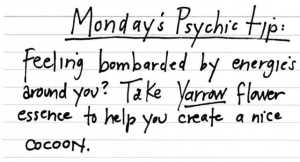 Monday's Psychic tip:
Feeling bombarded by energies
around you? Take Yarrow flower
essence to help you create a nice
cocoon.